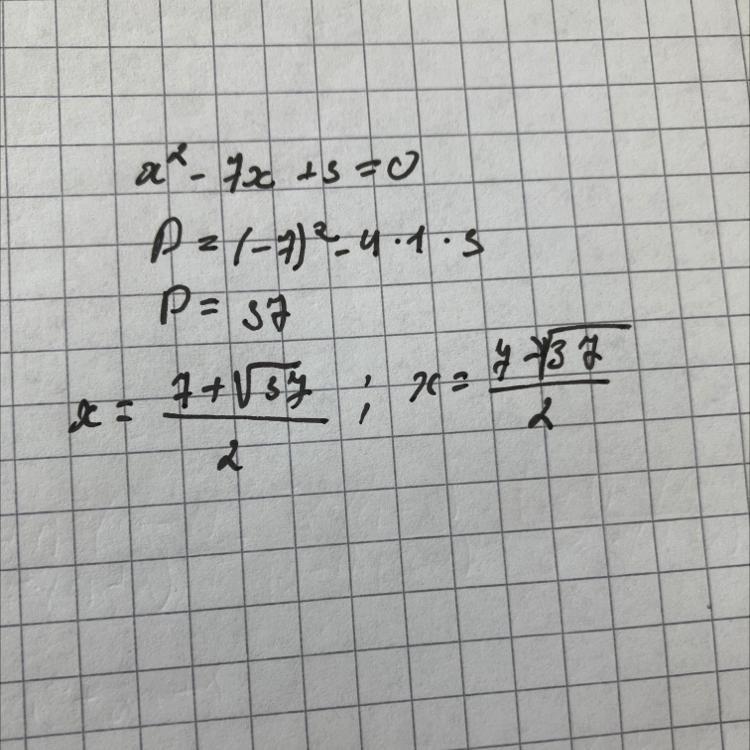 x² - 7x + 3 = 0
D = (-7)² - 4 · 1 · 3
D = 37
x = (7 + √37)/2 ; x = (7 - √37)/2